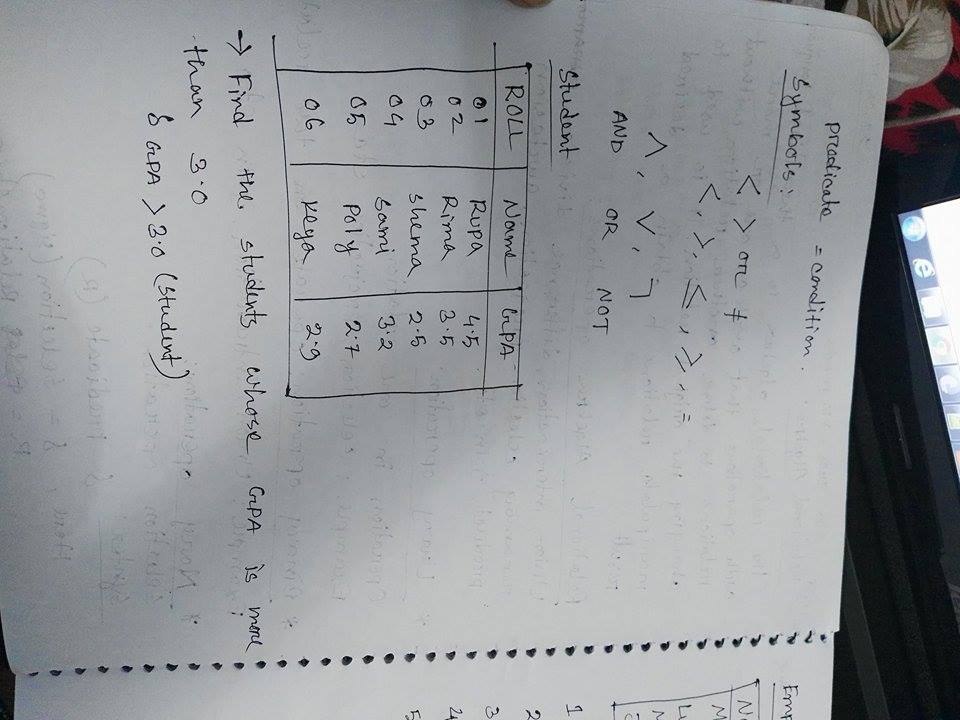 preadicate = condition.
Symbols:
< > orc ≠
<, >, ≤, ≥, =
∧, ∨, ¬
AND OR NOT
Student
ROLL Name GPA
01 Rupa 4.5
02 Rima 3.5
03 Shema 2.5
04 Sami 3.2
05 Poly 2.7
06 Keya 2.9
→ Find the students whose GPA is more
than 3.0
δ GPA > 3.0 (student)
Emp
1
2
3
4
5